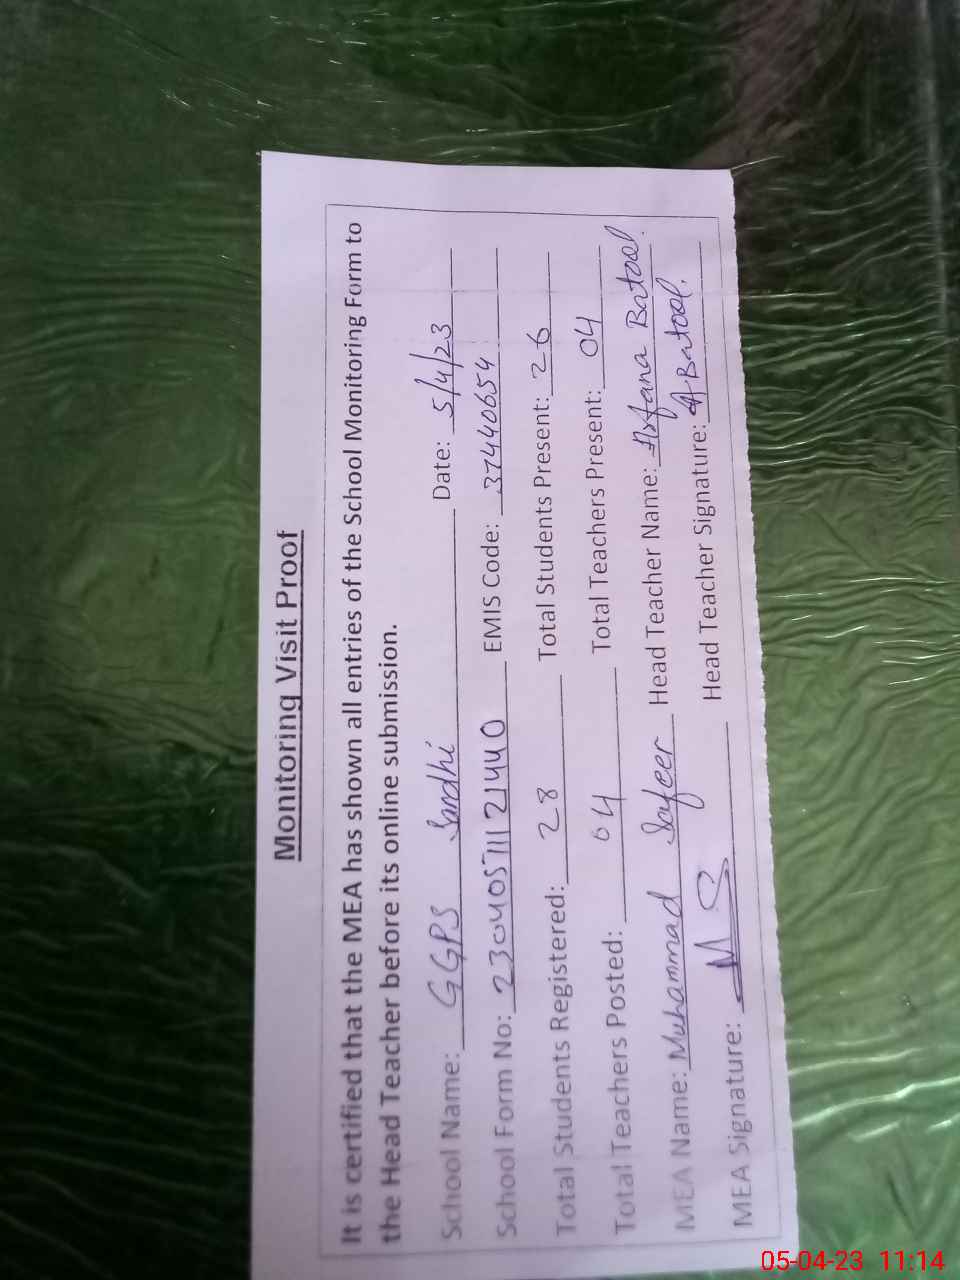 Monitoring Visit Proof
It is certified that the MEA has shown all entries of the School Monitoring Form to
the Head Teacher before its online submission.
School Name: GGPS Sandhi Date: 5/4/23
School Form No: 23040511121440 EMIS Code: 37440654
Total Students Registered: 28 Total Students Present: 26
Total Teachers Posted: 04 Total Teachers Present: 04
MEA Name: Muhammad Safeer Head Teacher Name: Asfana Batool.
MEA Signature: MS Head Teacher Signature: A Batool.
05-04-23 11:14